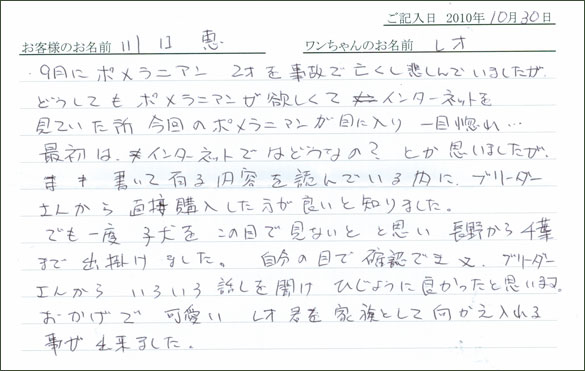 ご記入日 2010年10月30日
お客様のお名前 川口 恵 ワンちゃんのお名前 レオ
9月にポメラニアン 2才を事故で亡くし悲しんでいましたが、
どうしてもポメラニアンが欲しくて インターネットを
見ていた所 今回のポメラニアンが目に入り 一目惚れ…
最初は、インターネットではどうなの? とか思いましたが、
書いて有る内容を読んでいる内に、ブリーダー
さんから直接購入した方が良いと知りました。
でも一度 子犬をこの目で見ないと と思い 長野から千葉
まで出掛けました。 自分の目で確認でき 又、ブリーダー
さんから いろいろ話しを聞け ひじように良かったと思います。
おかげで 可愛い レオ君を家族として向かえ入れる
事が出来ました。